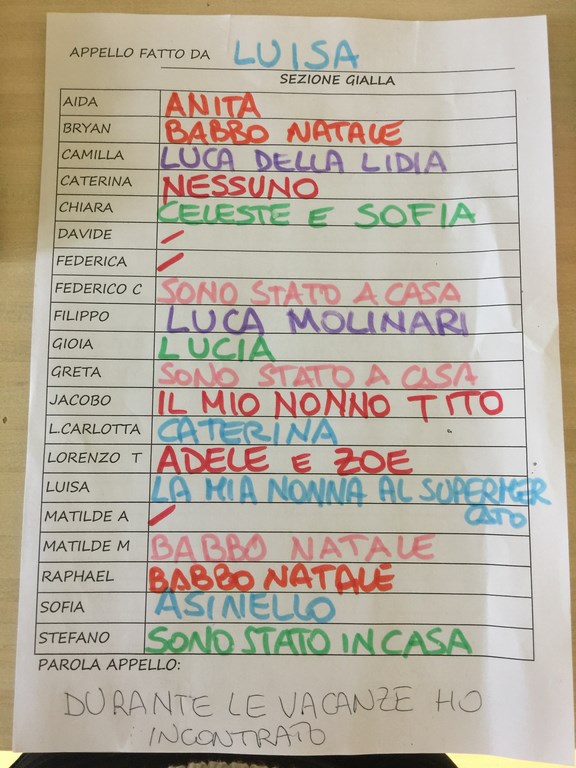 APPELLO FATTO DA LUISA
SEZIONE GIALLA
AIDA ANITA
BRYAN BABBO NATALE
CAMILLA LUCA DELLA LIDIA
CATERINA NESSUNO
CHIARA CELESTE E SOFIA
DAVIDE /
FEDERICA /
FEDERICO C SONO STATO A CASA
FILIPPO LUCA MOLINARI
GIOIA LUCIA
GRETA SONO STATO A CASA
JACOBO IL MIO NONNO TITO
L.CARLOTTA CATERINA
LORENZO T ADELE E ZOE
LUISA LA MIA NONNA AL SUPERMER
CATO
MATILDE A /
MATILDE M BABBO NATALE
RAPHAEL BABBO NATALE
SOFIA ASINELLO
STEFANO SONO STATO IN CASA
PAROLA APPELLO:
DURANTE LE VACANZE HO
INCONTRATO